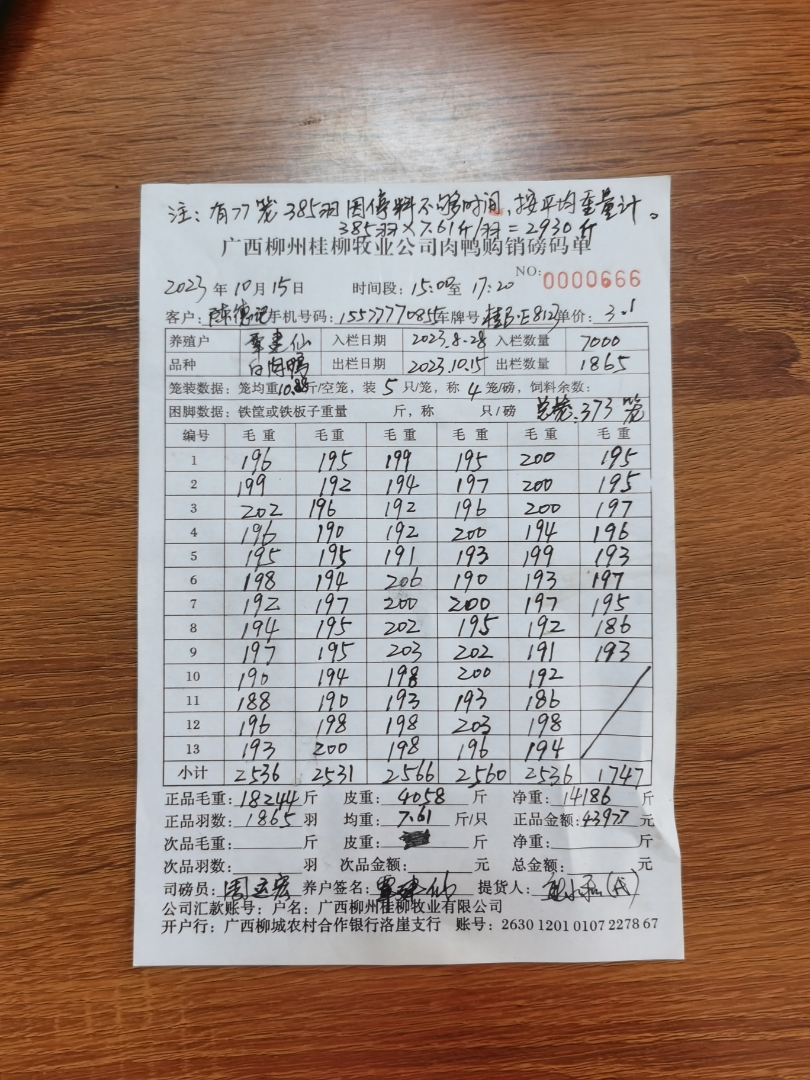 注：有77笼385羽因停料不够时间，按平均重量计。
385羽×7.61斤/羽＝2930斤
广西柳州桂柳牧业公司肉鸭购销磅码单
NO: 0000666
2023年10月15日 时间段：15:00至17:20
客户：陈德 手机号码：15577770855 车牌号 单价：3.1
养殖户 覃建仙 入栏日期 2023.8.28 入栏数量 7000
品种 白肉鸭 出栏日期 2023.10.15 出栏数量 1865
笼装数据：笼均重10.88斤/空笼，装5只/笼，称4笼/磅，饲料余数：
困脚数据：铁筐或铁板子重量 斤，称 只/磅 总笼：373笼
编号 毛重 毛重 毛重 毛重 毛重 毛重
1 196 195 199 195 200 195
2 199 192 194 197 200 195
3 202 196 192 196 200 197
4 196 190 192 200 194 196
5 195 195 191 193 199 193
6 198 194 206 190 193 197
7 192 197 200 200 197 195
8 194 195 202 195 192 186
9 197 195 203 202 191 193
10 190 194 198 200 192
11 188 190 193 193 186
12 196 198 198 203 198
13 193 200 198 196 194
小计 2536 2531 2566 2560 2536 1747
正品毛重：18244斤 皮重：4058斤 净重：14186斤
正品羽数：1865羽 均重：7.61斤/只 正品金额：43977元
次品毛重：斤 皮重：斤 净重：斤
次品羽数：羽 次品金额：元 总金额：元
司磅员：周立宏 养户签名：覃建仙 提货人：(代)
公司汇款账号：户名：广西柳州桂柳牧业有限公司
开户行：广西柳城农村合作银行洛崖支行 账号：2630 1201 0107 2278 67